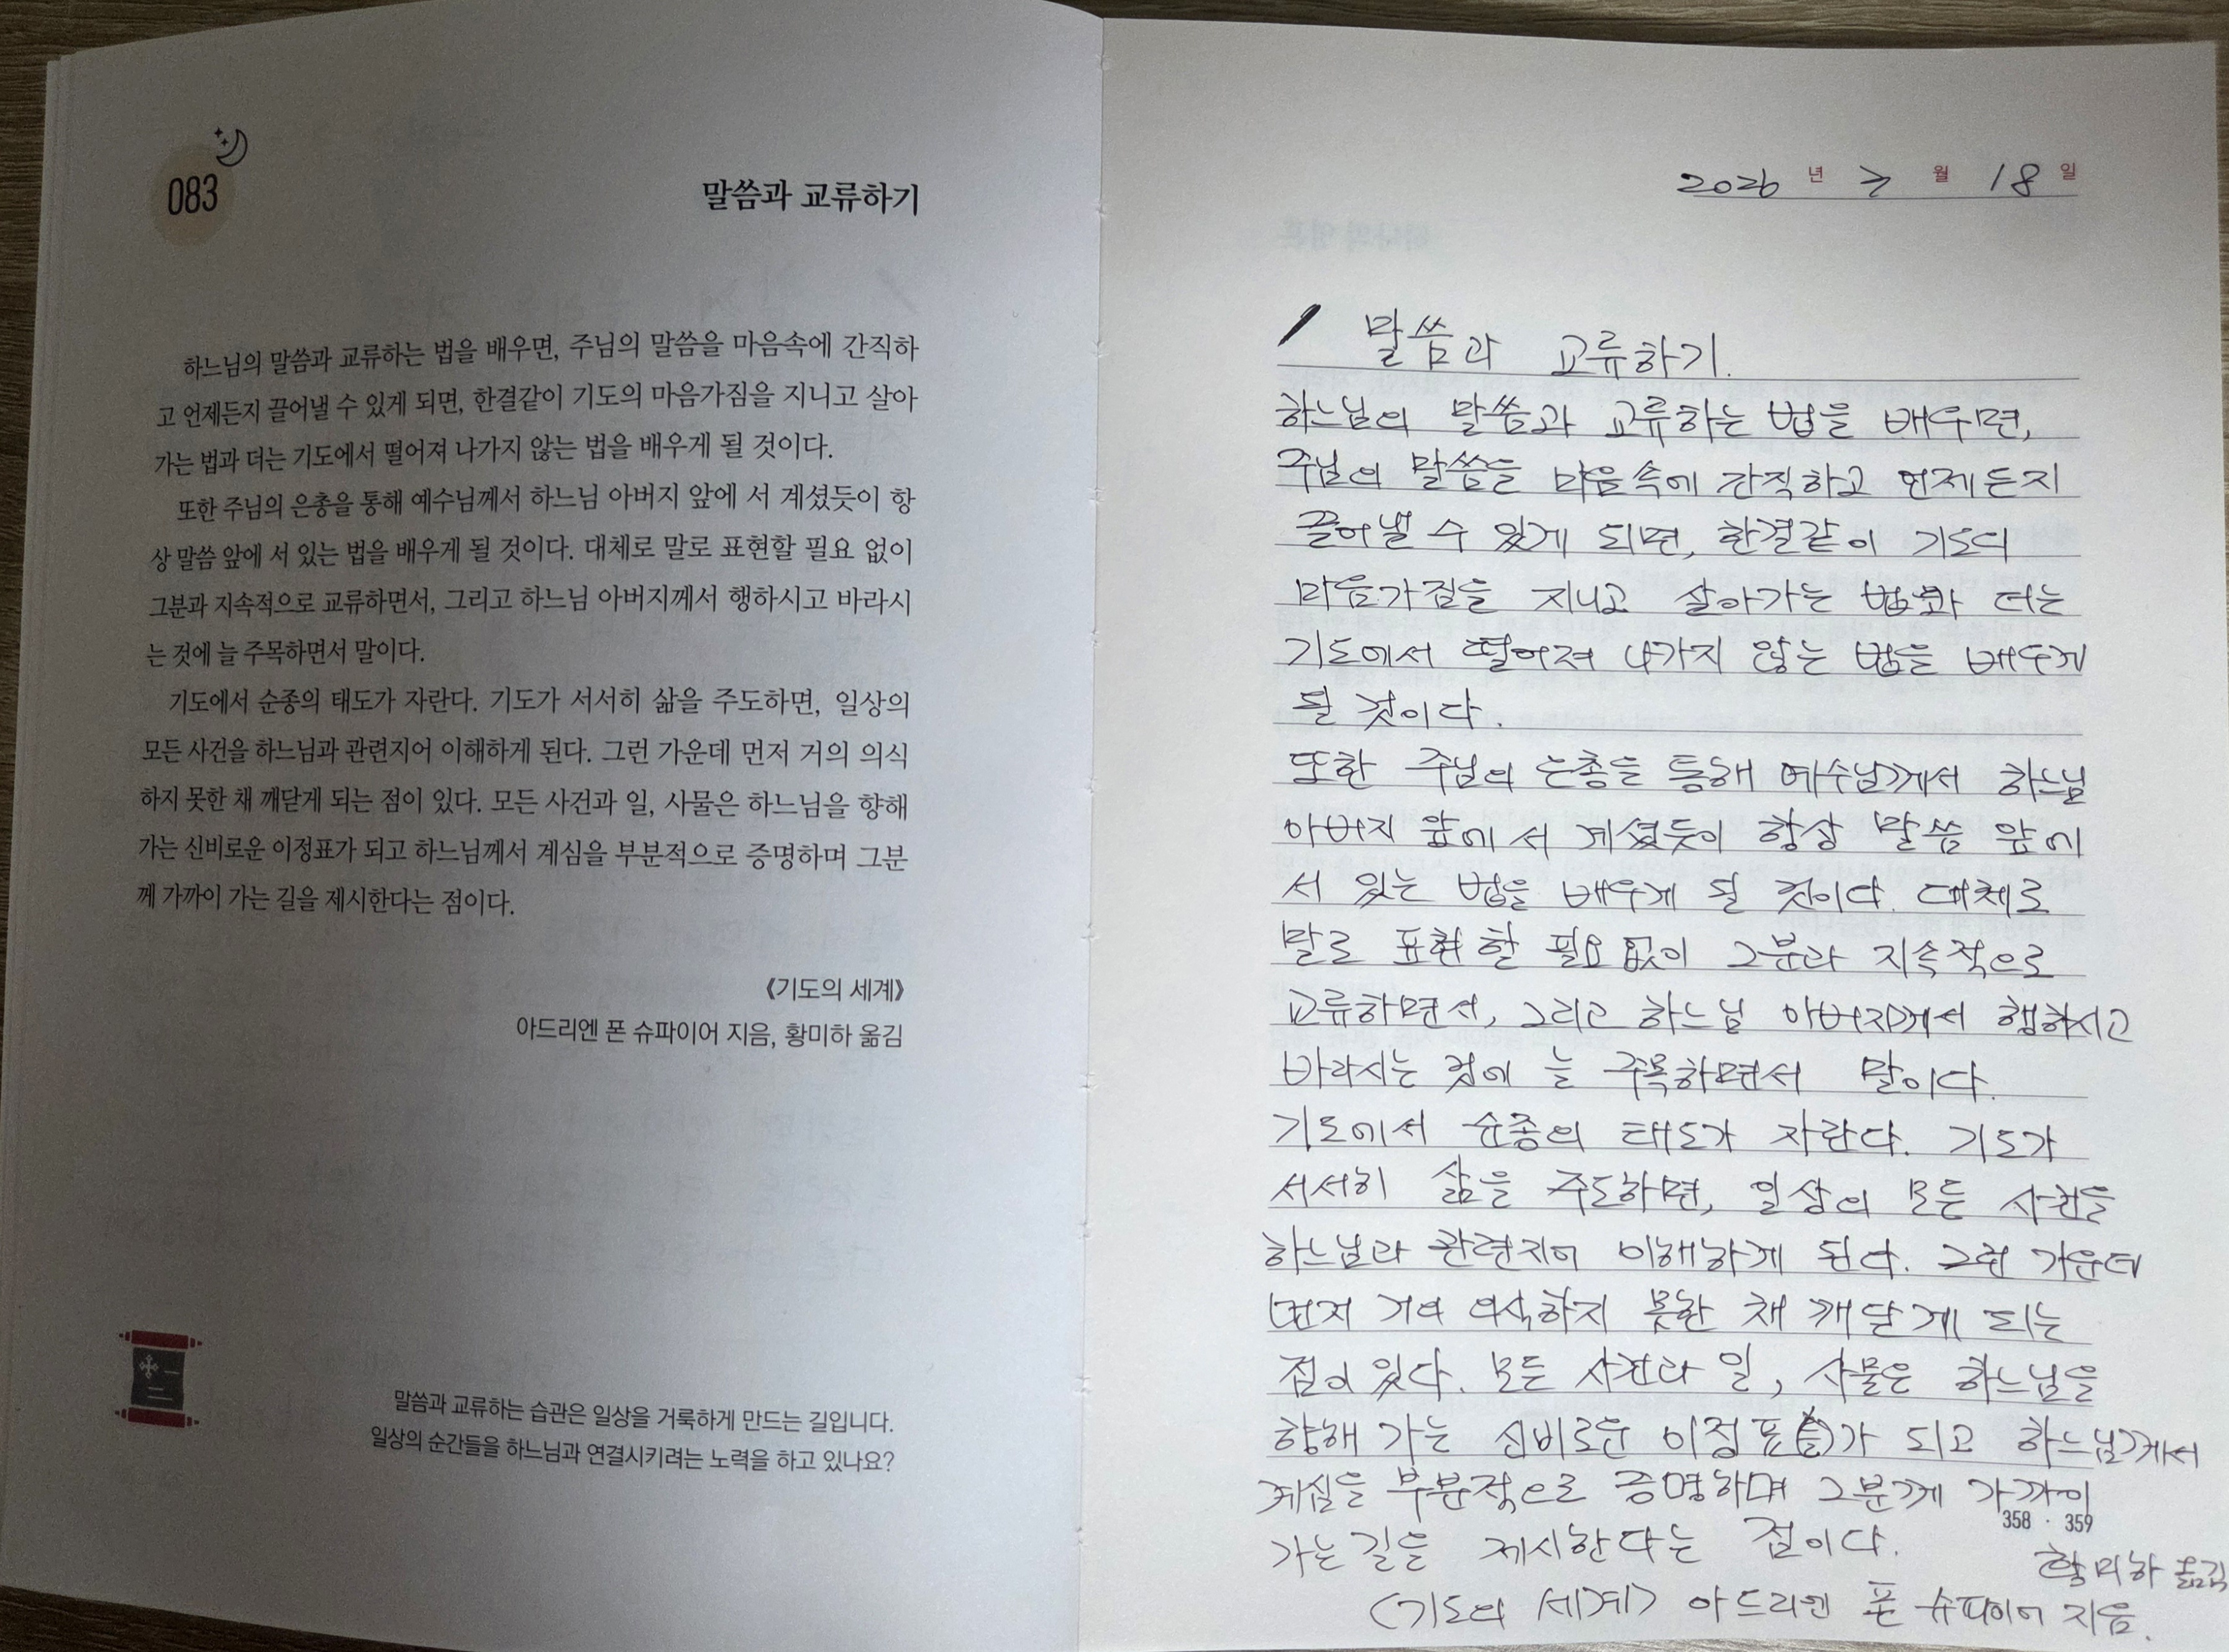 083
말씀과 교류하기
하느님의 말씀과 교류하는 법을 배우면, 주님의 말씀을 마음속에 간직하
고 언제든지 끌어낼 수 있게 되면, 한결같이 기도의 마음가짐을 지니고 살아
가는 법과 더는 기도에서 떨어져 나가지 않는 법을 배우게 될 것이다.
또한 주님의 은총을 통해 예수님께서 하느님 아버지 앞에 서 계셨듯이 항
상 말씀 앞에 서 있는 법을 배우게 될 것이다. 대체로 말로 표현할 필요 없이
그분과 지속적으로 교류하면서, 그리고 하느님 아버지께서 행하시고 바라시
는 것에 늘 주목하면서 말이다.
기도에서 순종의 태도가 자란다. 기도가 서서히 삶을 주도하면, 일상의
모든 사건을 하느님과 관련지어 이해하게 된다. 그런 가운데 먼저 거의 의식
하지 못한 채 깨닫게 되는 점이 있다. 모든 사건과 일, 사물은 하느님을 향해
가는 신비로운 이정표가 되고 하느님께서 계심을 부분적으로 증명하며 그분
께 가까이 가는 길을 제시한다는 점이다.
《기도의 세계》
아드리엔 폰 슈파이어 지음, 황미하 옮김
말씀과 교류하는 습관은 일상을 거룩하게 만드는 길입니다.
일상의 순간들을 하느님과 연결시키려는 노력을 하고 있나요?
2026 년 7 월 18 일
말씀과 교류하기.
하느님의 말씀과 교류하는 법을 배우면,
주님의 말씀을 마음속에 간직하고 언제든지
끌어낼 수 있게 되면, 한결같이 기도의
마음가짐을 지니고 살아가는 법과 더는
기도에서 떨어져 나가지 않는 법을 배우게
될 것이다.
또한 주님의 은총을 통해 예수님께서 하느님
아버지 앞에 서 계셨듯이 항상 말씀 앞에
서 있는 법을 배우게 될 것이다. 대체로
말로 표현할 필요 없이 그분과 지속적으로
교류하면서, 그리고 하느님 아버지께서 행하시고
바라시는 것에 늘 주목하면서 말이다.
기도에서 순종의 태도가 자란다. 기도가
서서히 삶을 주도하면, 일상의 모든 사건을
하느님과 관련지어 이해하게 된다. 그런 가운데
먼저 거의 의식하지 못한 채 깨닫게 되는
점이 있다. 모든 사건과 일, 사물은 하느님을
향해 가는 신비로운 이정표가 되고 하느님께서
계심을 부분적으로 증명하며 그분께 가까이
358 · 359
가는 길을 제시한다는 점이다.
황미하 옮김
<기도의 세계> 아드리엔 폰 슈파이어 지음.